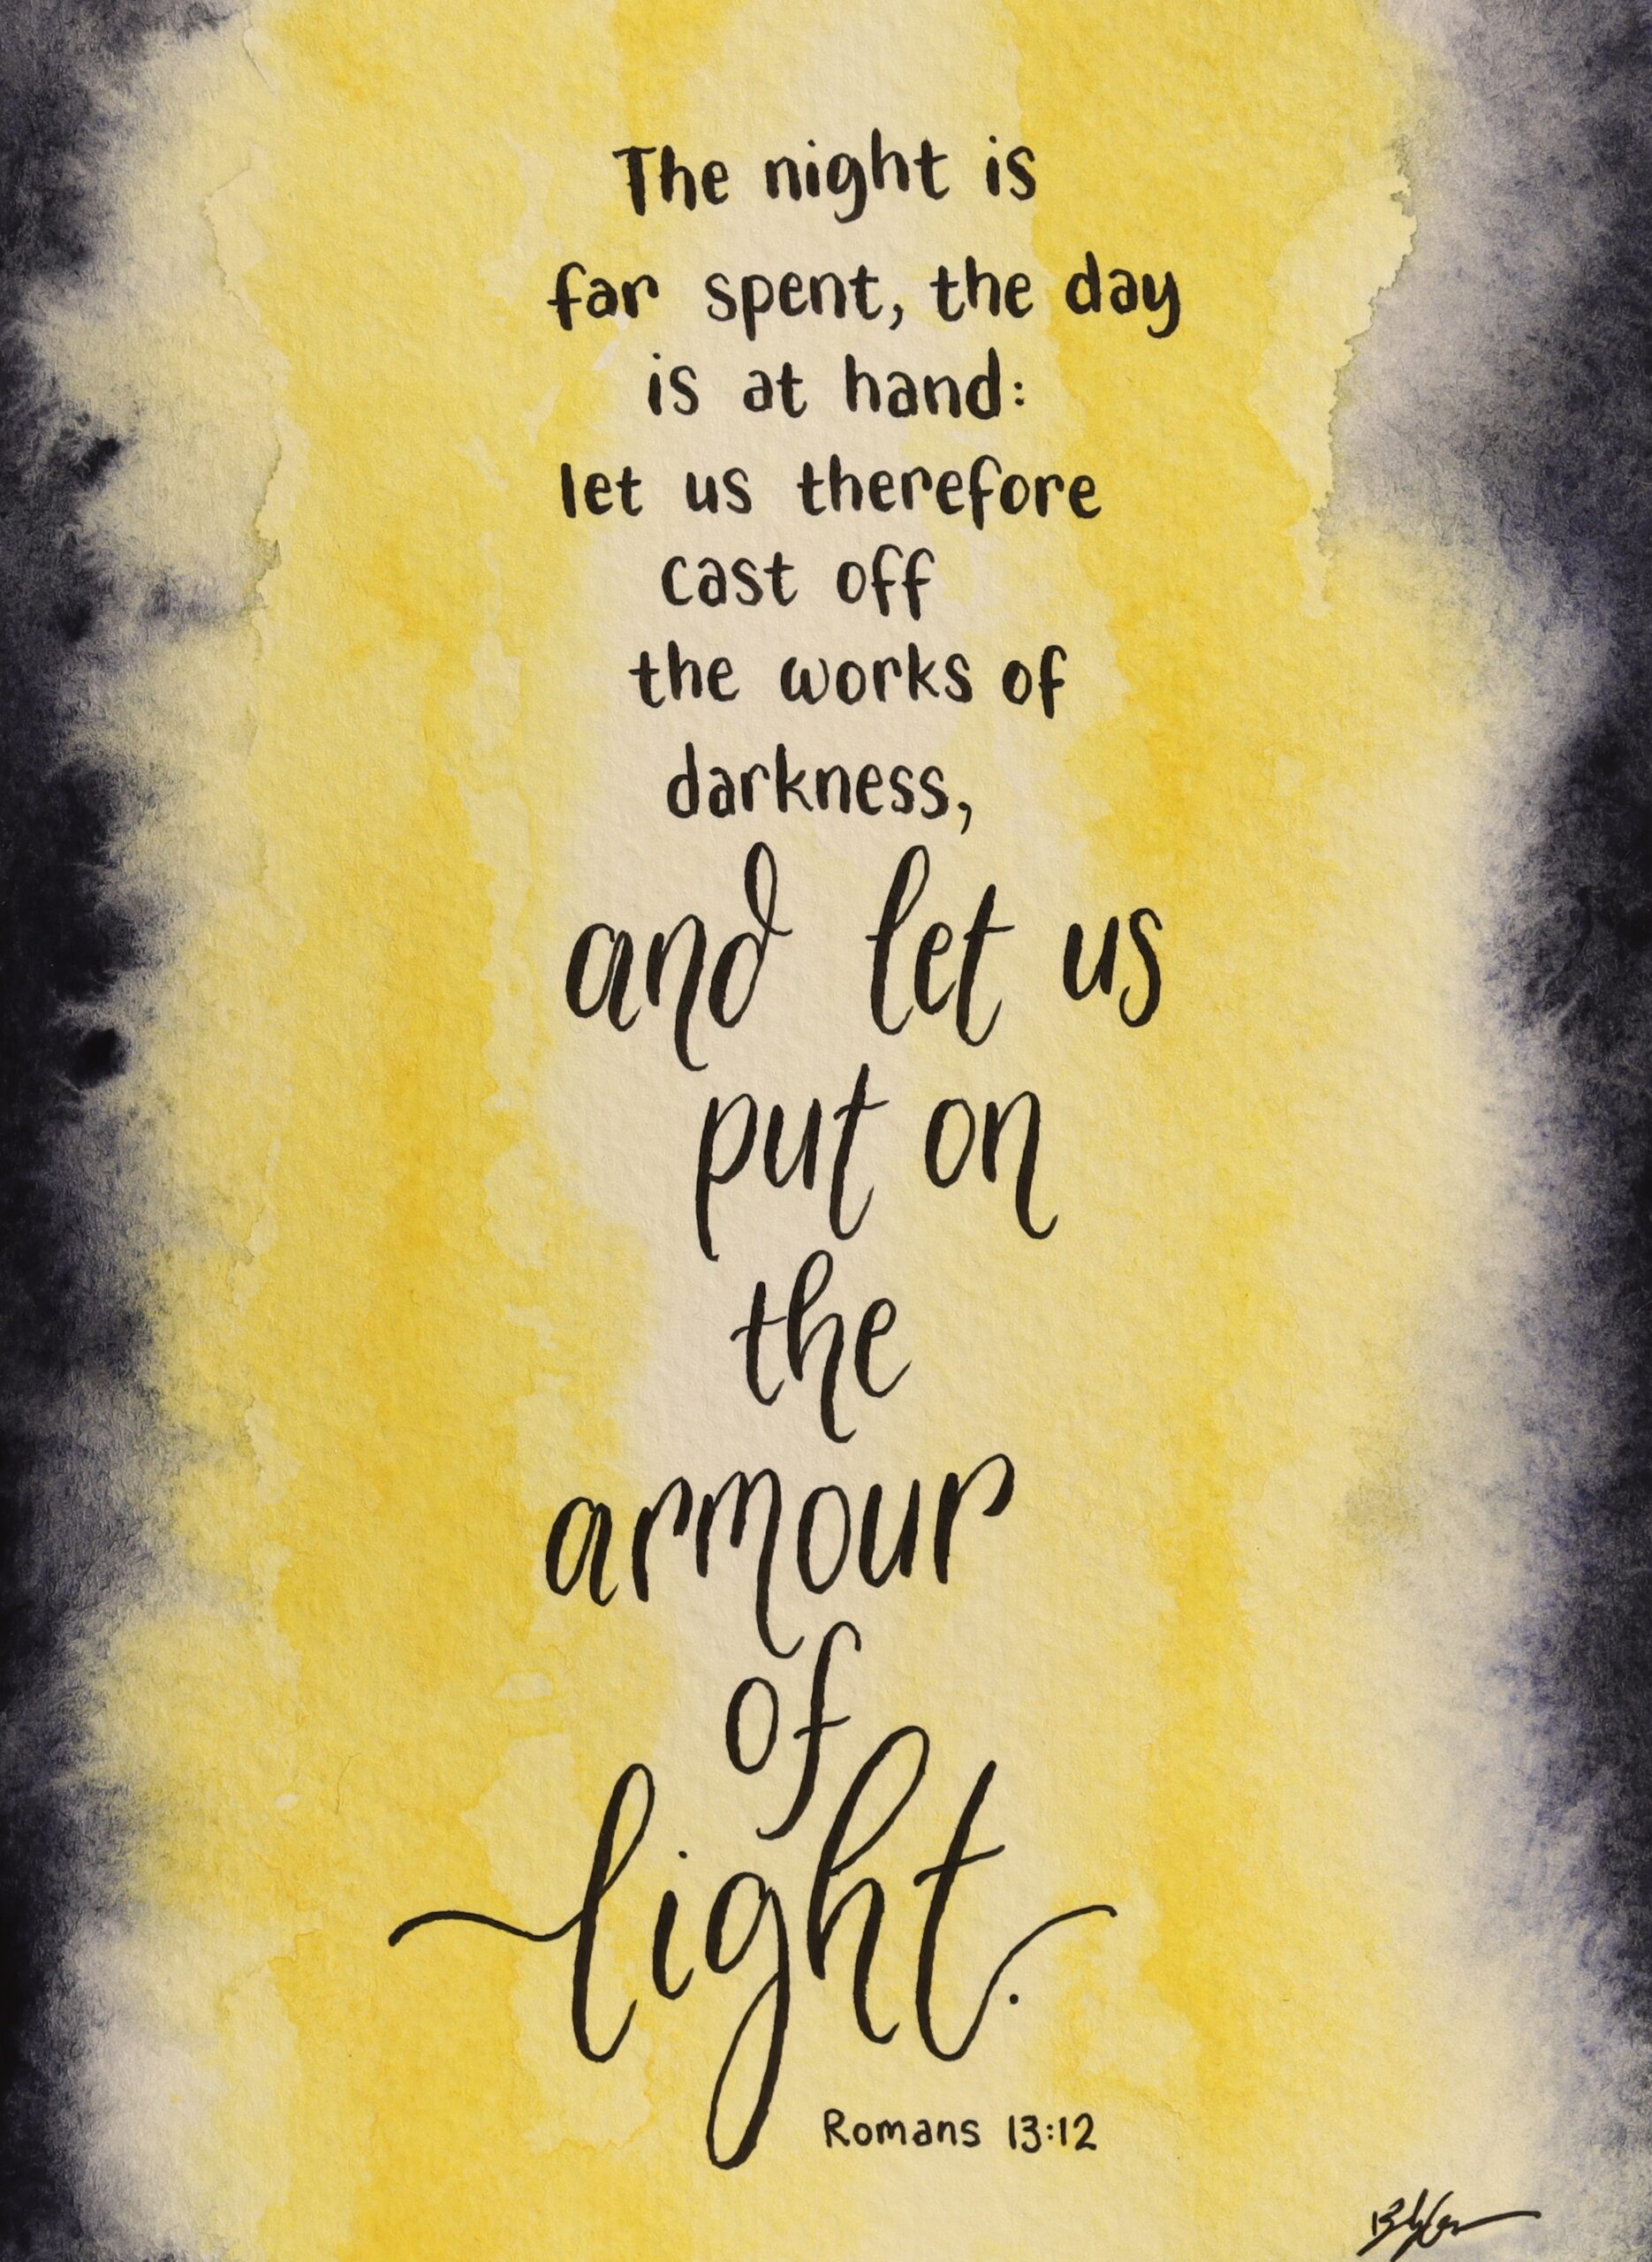 The night is
far spent, the day
is at hand:
let us therefore
cast off
the works of
darkness,
and let us
put on
the
armour
of
light.
Romans 13:12